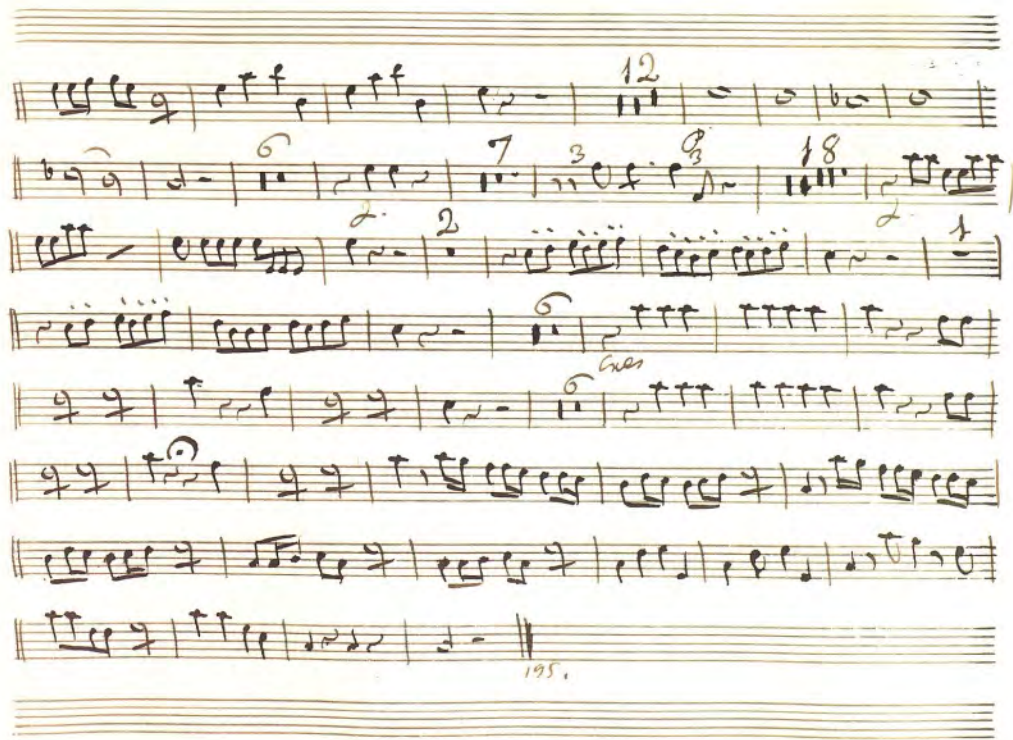 12
6 7 3 3 18
2. 2 2 1
6
Cres
6
195.